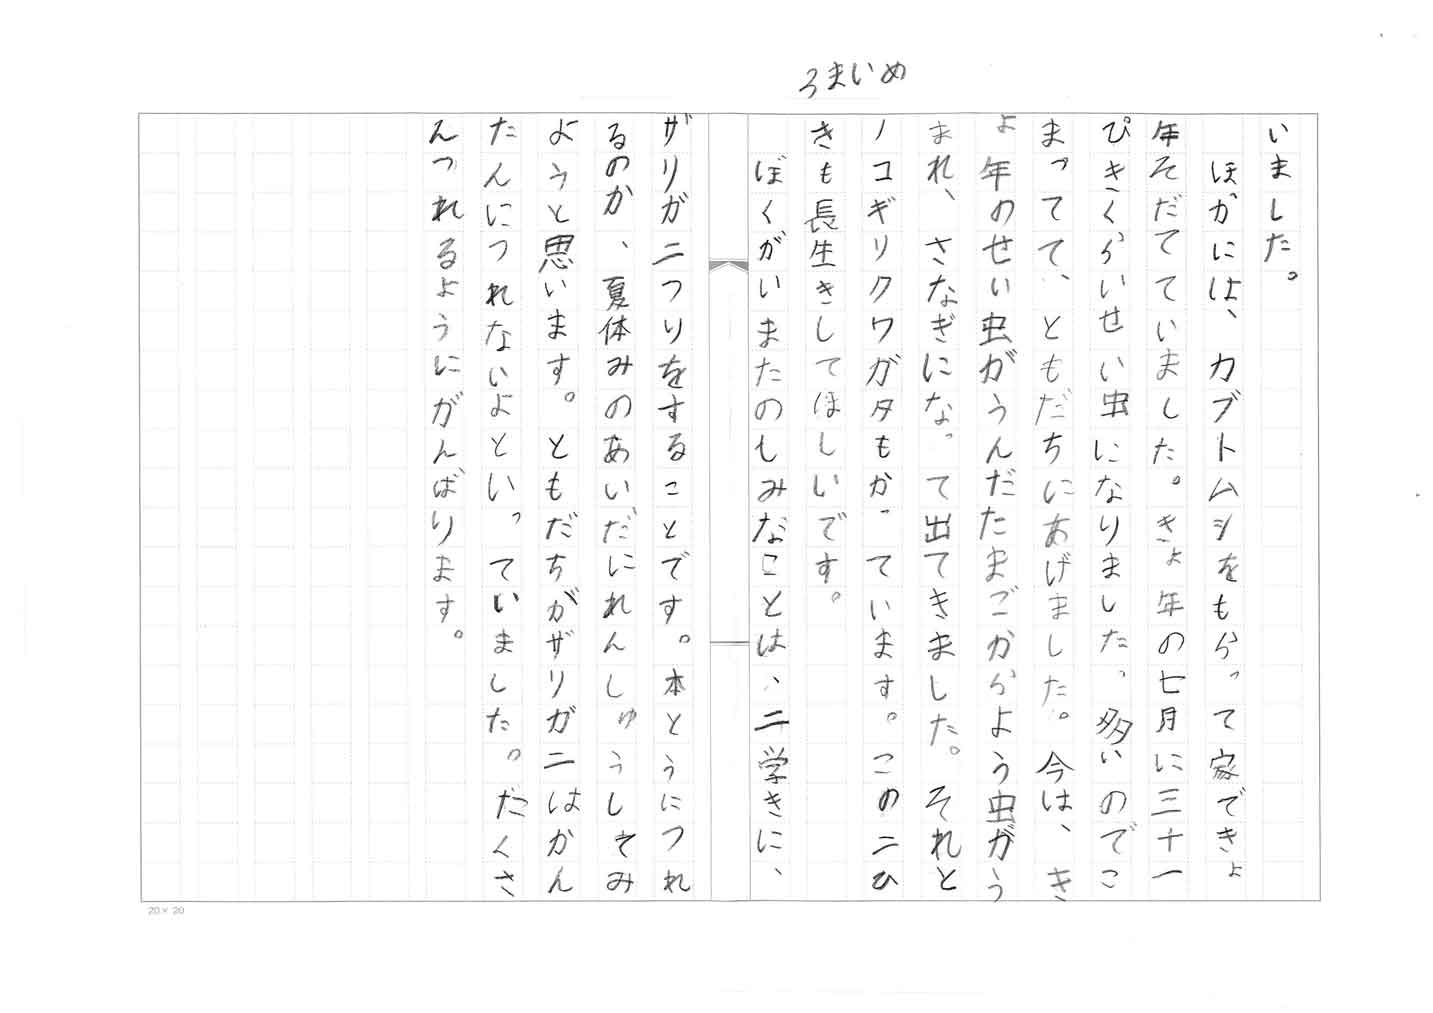 3まいめ
いました。
ほかには、カブトムシをもらって家できょ
年そだてていました。きょ年の七月に三十一
ぴきくらいせい虫になりました。多いのでこ
まってて、ともだちにあげました。今は、き
ょ年のせい虫がうんだたまごからよう虫がう
まれ、さなぎになって出てきました。それと
ノコギリクワガタもかっています。この二ひ
きも長生きしてほしいです。
ぼくがいまたのしみなことは、二学きに、
ザリガニつりをすることです。本とうにつれ
るのか、夏体みのあいだにれんしゅうしてみ
ようと思います。ともだちがザリガニはかん
たんにつれないよといっていました。たくさ
んつれるようにがんばります。
20×20